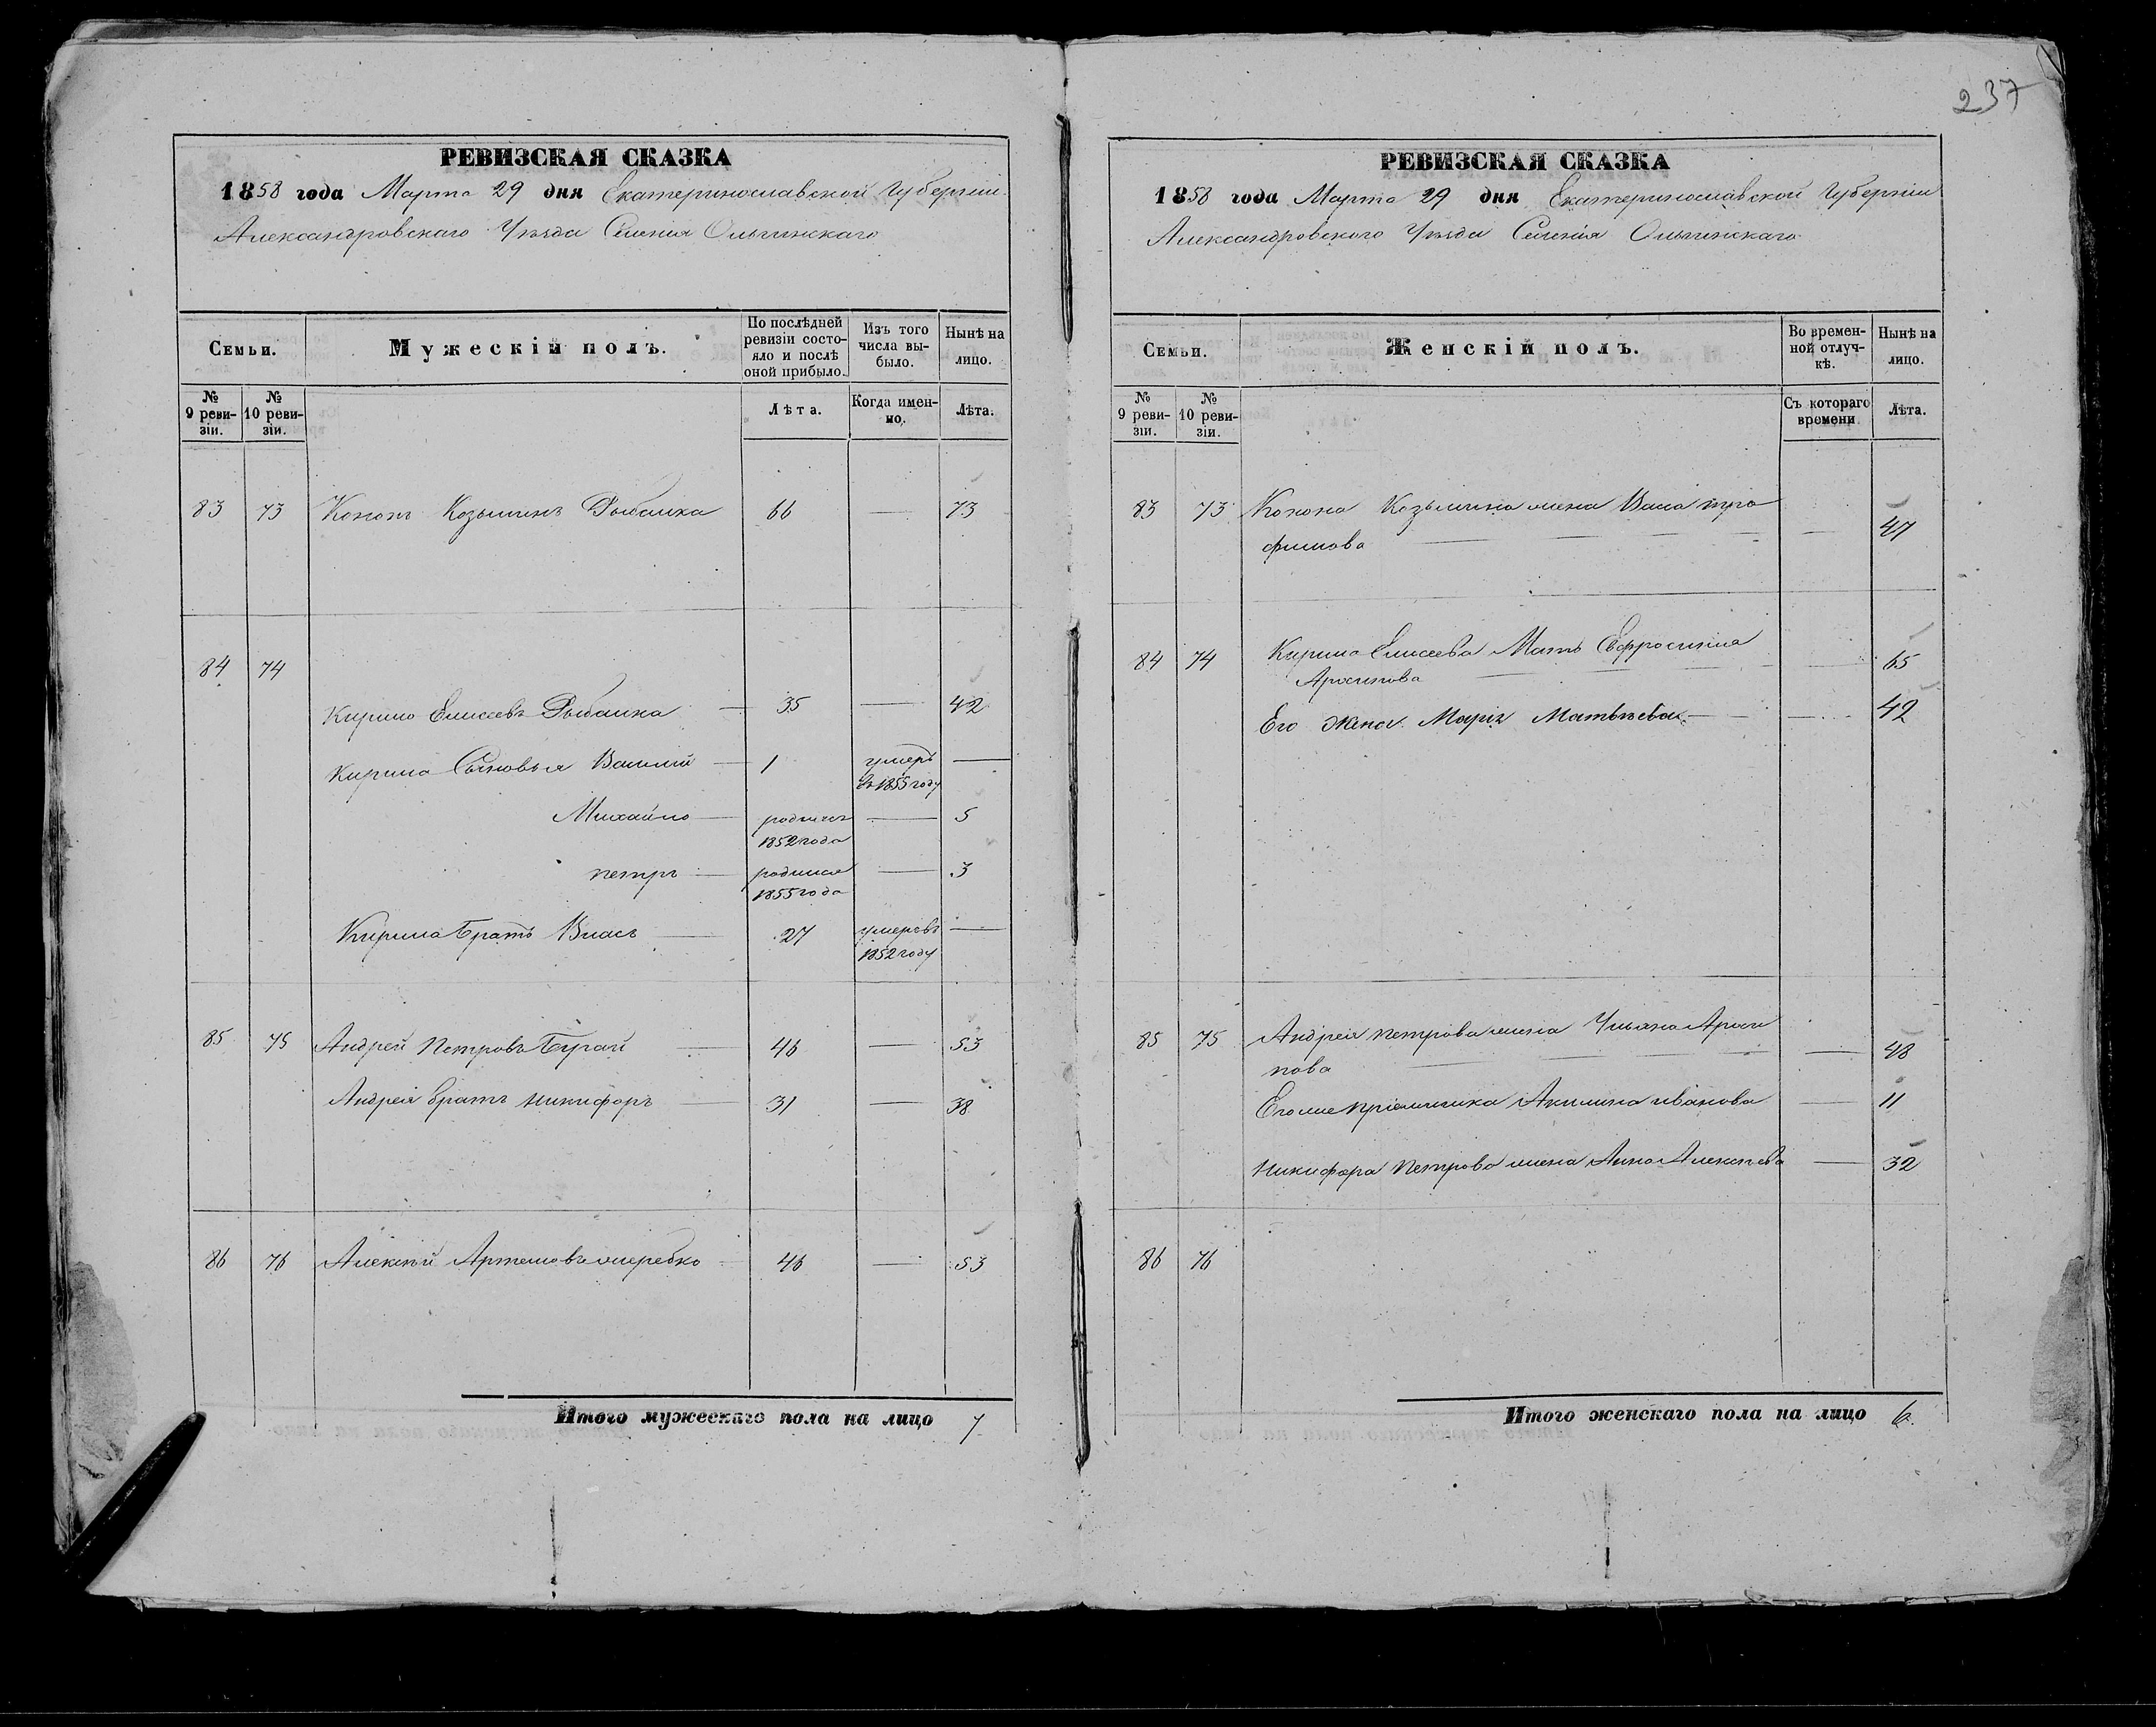 237
РЕВИЗСКАЯ СКАЗКА
1858 года Марта 29 дня Екатеринославской Губерніи
Александровскаго Уѣзда Селенія Ольгинскаго
Семьи.
Мужескій полъ.
По послѣдней ревизіи состояло и послѣ оной прибыло.
Изъ того числа выбыло.
Нынѣ на лицо.
№ 9 ревизіи.
№ 10 ревизіи.
Лѣта.
Когда именно.
Лѣта.
83 73 Кононъ Козьминъ Рыбалка 66 — 73
84 74
Кирило Елисеевъ Рыбалка — 35 — 42
Кирила Сыновья Василій — 1 умеръ —
въ 1855 году
Михайло — родился — 5
1852 года
петръ — родился — 3
1855 года
Кирила Братъ Власъ — 27 умеръ въ —
1852 году
85 75 Андрей Петровъ Бугай — 46 — 53
Андрея братъ Никифоръ — 31 — 38
86 76 Алексѣй Артемовъ жеребко — 46 — 53
Итого мужескаго пола на лицо 7
РЕВИЗСКАЯ СКАЗКА
1858 года Марта 29 дня Екатеринославской Губерніи
Александровского Уѣзда Селенія Ольгинскаго
Семьи.
Женскій полъ.
Во временной отлучкѣ.
Нынѣ на лицо.
№ 9 ревизіи.
№ 10 ревизіи.
Съ котораго времени
Лѣта.
83 73 Конона Козьмина жена тро
фимова — — 47
84 74 Кирила Елисеева Мать Ефросинія
— — 65
Его жена Марія Матвѣева — — 42
85 75 Андрея петрова жена Ульяна Архи
пова — — 48
Его же пріемышка Акилина иванова — 11
Никифора Петрова жена Анна Алексѣева — 32
86 76
Итого женскаго пола на лицо 6.